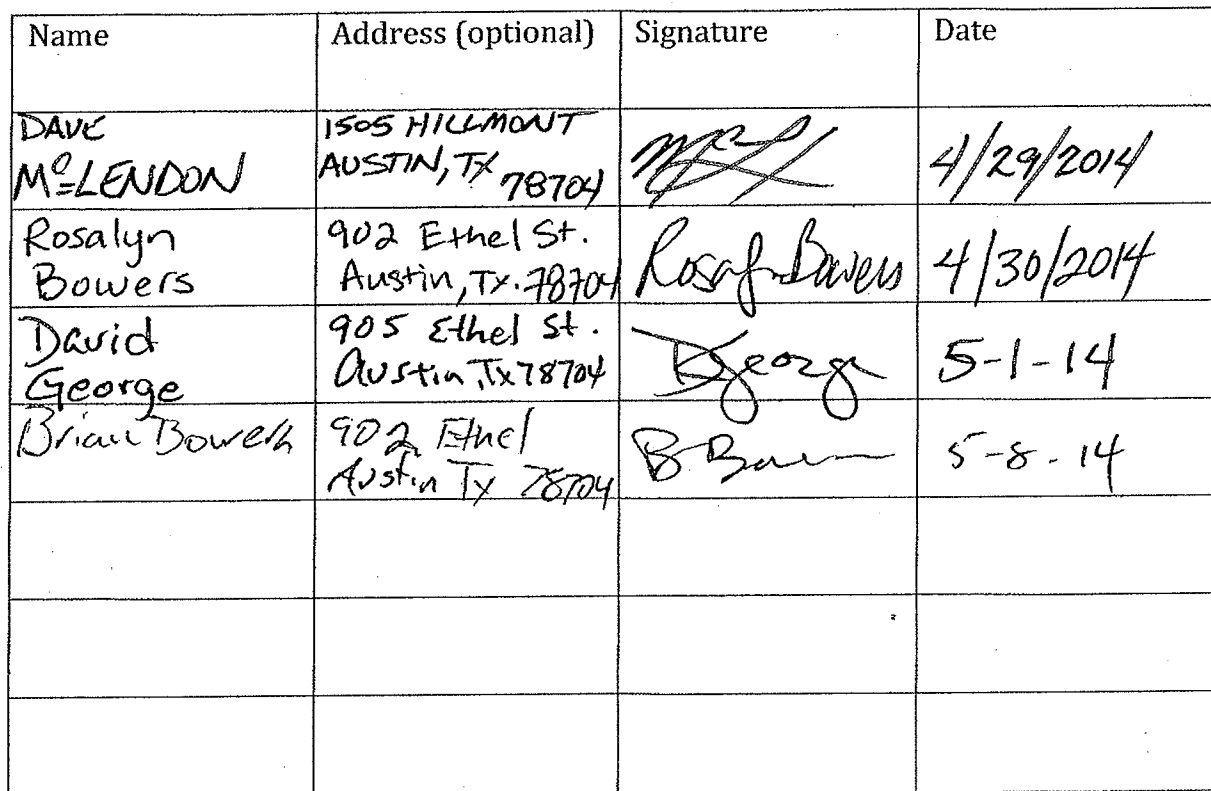 Name Address (optional) Signature Date
DAVE 1505 HILLMONT
McLENDON AUSTIN, TX 78704 4/29/2014
Rosalyn 902 Ethel St.
Bowers Austin, Tx. 78704 Rosalyn Bowers 4/30/2014
David 905 Ethel St.
George Austin, Tx 78704 DGeorge 5-1-14
Brian Bowers 902 Ethel
Austin Tx 78704 B Bow 5-8-14